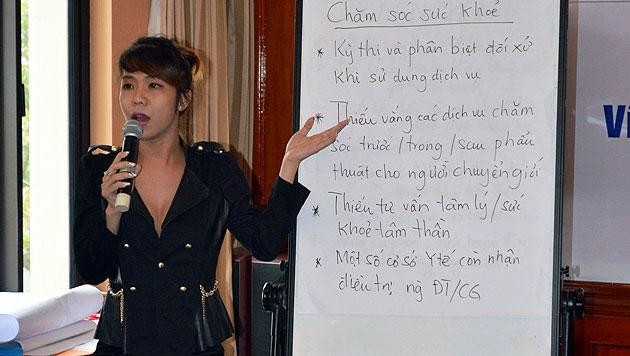 Chăm sóc sức khoẻ
* Kỳ thị và phân biệt đối xử
khi sử dụng dịch vụ
* Thiếu vắng các dịch vụ chăm
sóc trước/trong/sau phẫu
thuật cho người chuyển giới
* Thiếu tư vấn tâm lý/sức
khoẻ tâm thần
* Một số cơ sở Y tế còn nhận
điều trị ng ĐT/CG
Vi